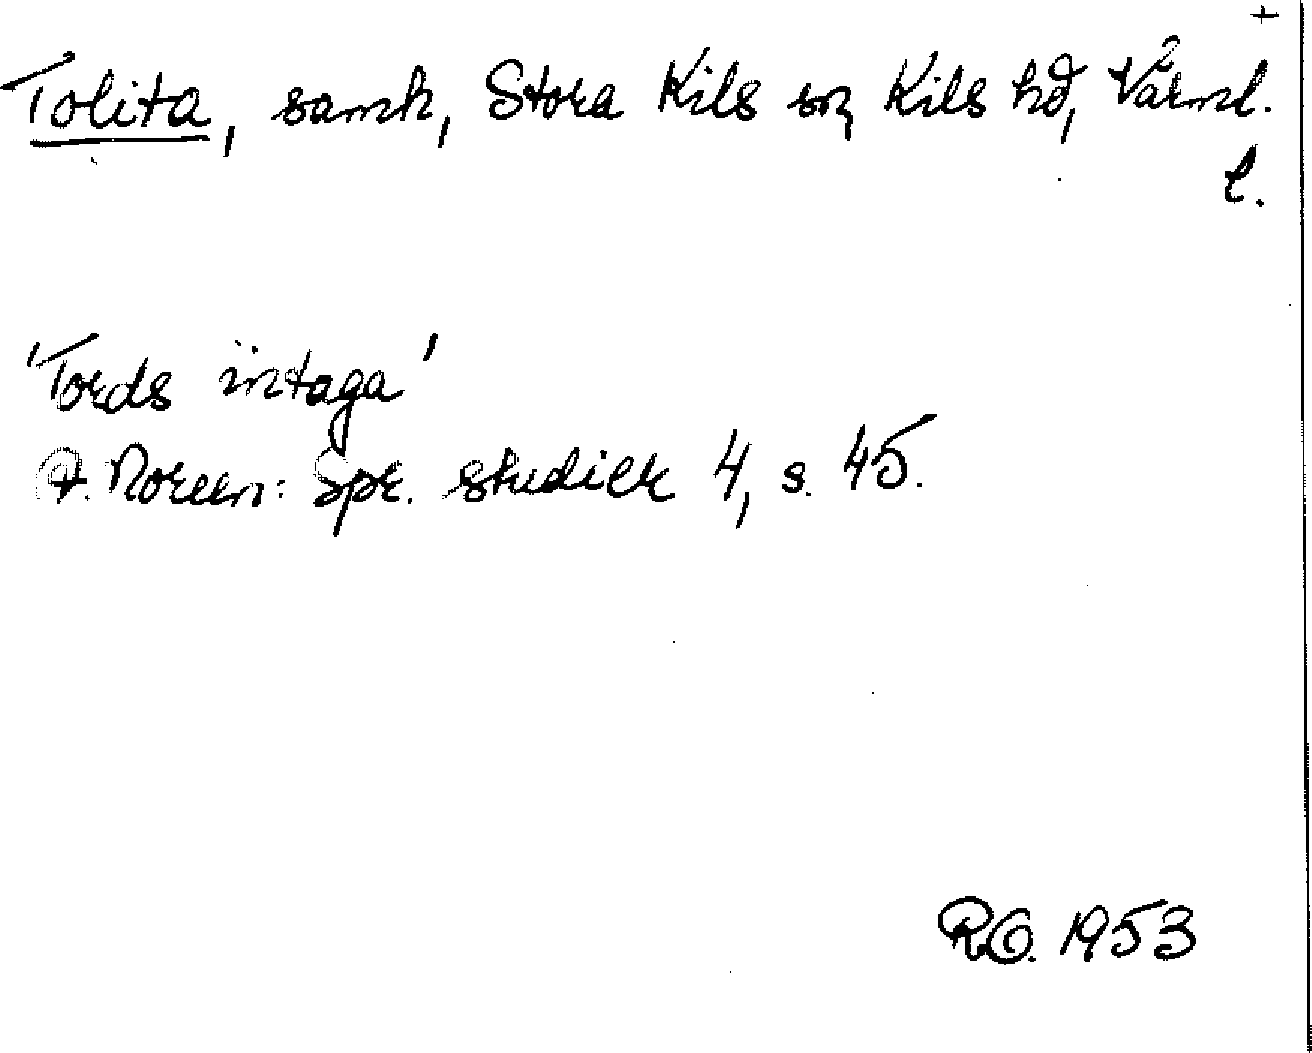 +
Tolita, samh, Stora Kils sn, Kils hd, Värml.
l.
'Tords intaga'
A. Noreen: Spr. studier 4, s. 45.
RO. 1953